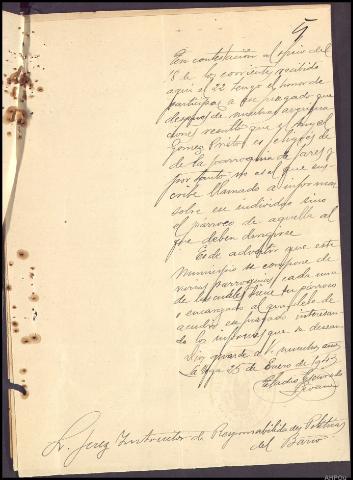 5
En contestación al oficio del
18 de los corrientes recibido
aquí el 22 tengo el honor de
participar a ese juzgado que
despues de muchas averigua
ciones resulta que
Gomez Prieto es feligrés de
de la parroquia de Jares y
por tanto no es el que sus
cribe llamado a informar
sobre ese individuo sino
el párroco de aquella al
que deben dirigirse
Es de advertir que este
Municipio se compone de
varias parroquias cada una
de las cuales tiene su párroco
o encargado al que debe de
acudir ese juzgado interesan
do los informes que se desean
Dios guarde a V. muchos años
La Vega 25 de Enero de 194
Eladio

Sr. Juez Instructor de Responsabilidades Políticas
del Barco
AHPOu